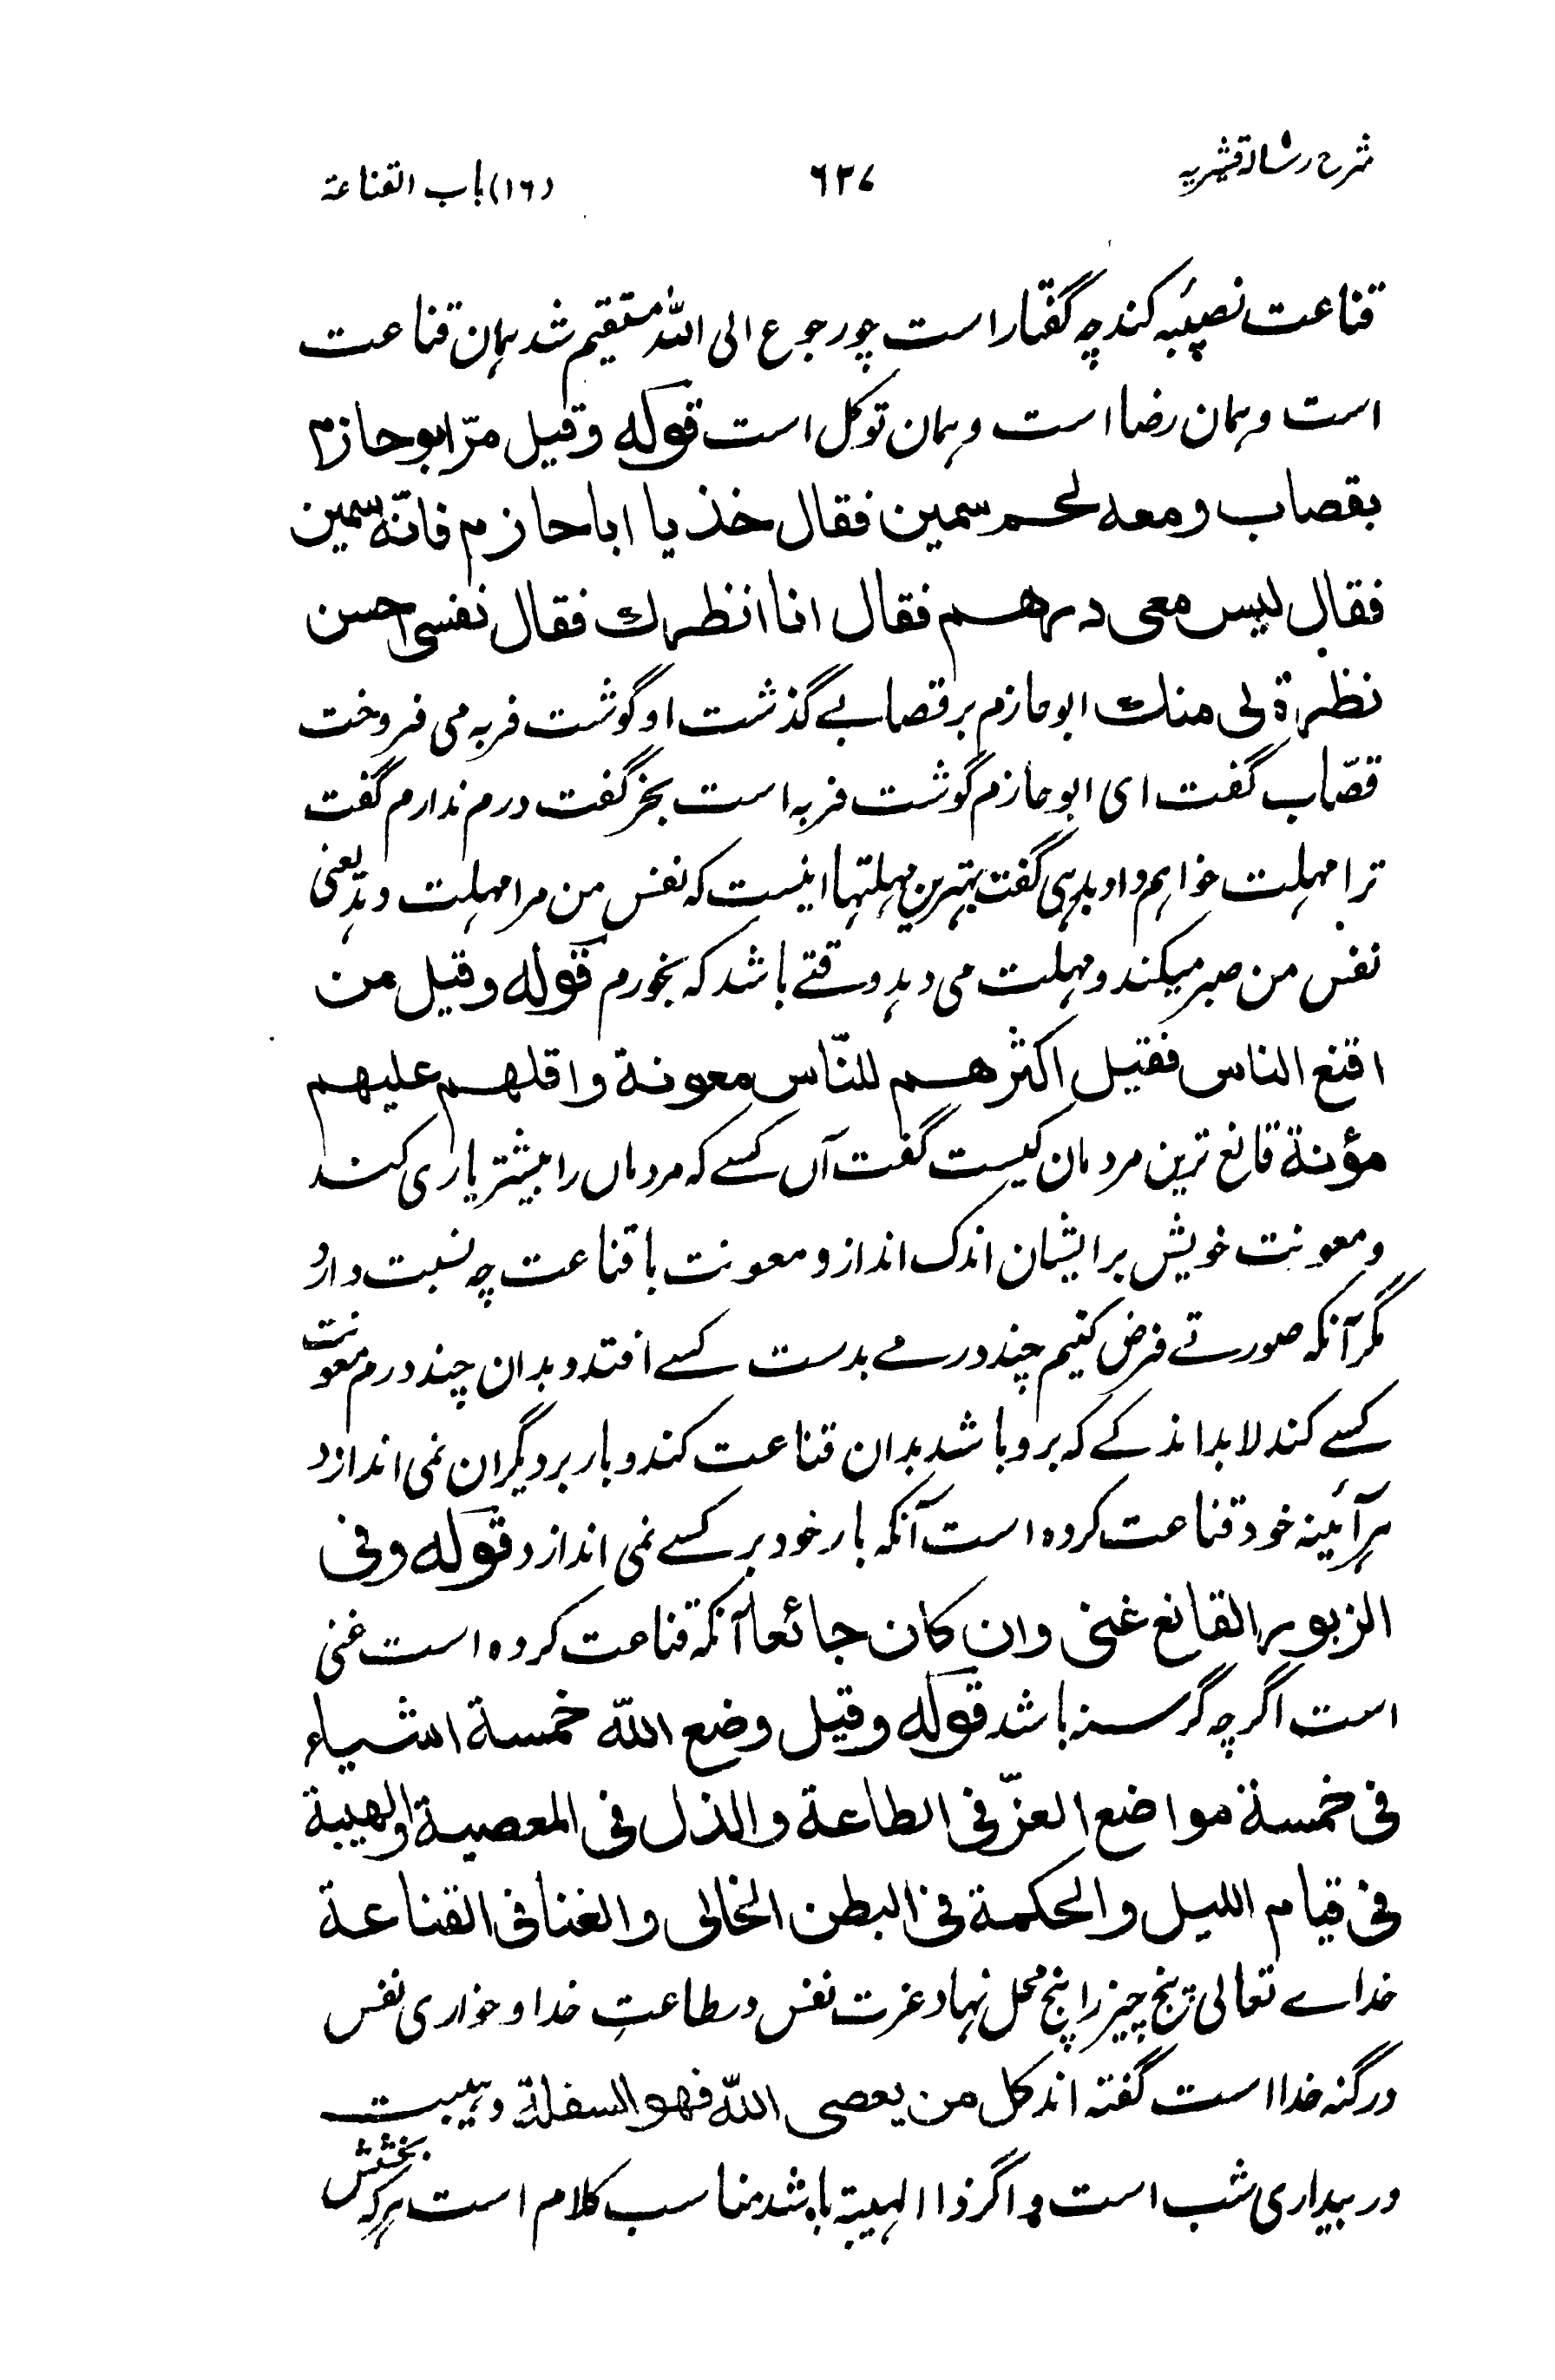 شرح رساله قشیریه ۶۳۷ (۱۶) باب القناعة
قناعت نصیبه کند چه گفتار است چو رجوع الی الله مستقیم شد همان قناعت
است و همان رضا است و همان توکل است قوله وقیل مرّ ابوحازم
بقصاب ومعه لحم سمین فقال خذ یا اباحازم فانّه سمین
فقال لیس معی درهم فقال انا انظرك فقال نفسی احسن
نظرة لی منك ابوحازم بر قصابے گذشت او گوشت فربه می فروخت
قصّاب گفت ای ابوحازم گوشت فربه است بخر گفت درم ندارم گفت
ترا مهلت خواهم داد بدهی گفت بهترین مهلتها اینست که نفس من مرا مهلت دهد یعنی
نفس من صبر میکند و مهلت می دهد وقتے باشد که بخورم قوله وقیل من
اقنع الناس فقیل اکثرهم للنّاس معونة واقلهم علیهم
مؤنة قانع ترین مردمان کیست گفت آں کسے که مردماں را بیشتر یاری کند
و معونت خویش بر ایشان اندک اندازد معونت با قناعت چه نسبت دارد
مگر آنکه صورتے فرض کنیم چند درمے بدست کسے افتد و بدان چند درم معونت
کسے کند لابد اندکے که برو باشد بدان قناعت کند و بار بر دیگران نمی اندازد
هر آئینه خود قناعت کرده است آنکه بار خود بر کسے نمی اندازد قوله وفی
الزبور القانع غنی وان کان جائعا آنکه قناعت کرده است غنی
است اگرچه گرسنه باشد قوله وقیل وضع الله خمسة اشیاء
فی خمسة مواضع العزّ فی الطاعة والذل فی المعصیة والهیبة
فی قیام اللیل والحکمة فی البطن الخالی والغنا فی القناعة
خداے تعالی پنج چیز را پنج محل نهاد عزت نفس در طاعتِ خدا و خواری نفس
در گنه خدا است گفته اند کل من یعصی الله فهو السفلة و هیبت
در بیداری شب است و اگر ذا الهیبة باشد مناسب کلام است هرکه بخشش